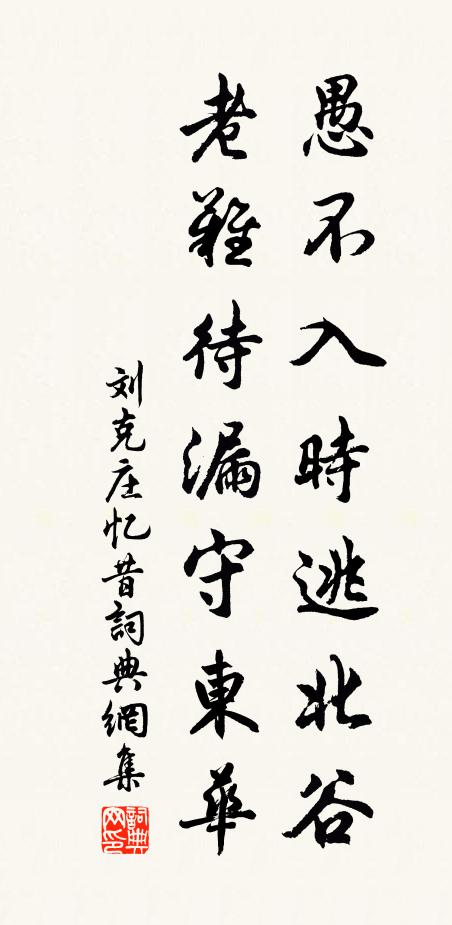 愚不入時逃北谷
老難待漏守東華
刘克庄忆昔詞典網集
詞典
网印